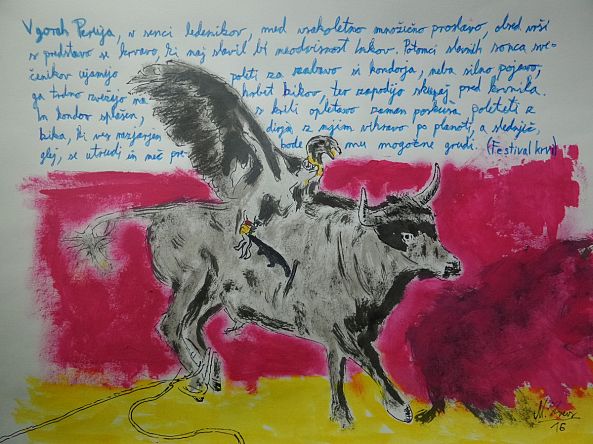 V gorah Peruja, v senci ledenikov, med vsakoletno množično proslavo, obred vrši
s predstavo se krvavo, ki naj slavil bi neodvisnost Inkov. Potomci slavnih sonca sve-
čenikov ujamejo poleti za zabavo si kondorja, neba silno pojavo,
ga trdno zvežejo na hrbet bikov, ter zapodijo skupaj pred krvnika.
In kondor splašen, s krili opletava zaman poskuša poleteti z
bika, ki ves razjarjen dirja, z njim vihravo po planoti, a slednjič,
glej, se utrudi in meč pre bode mu mogočne grudi. (Festival krvi)
16